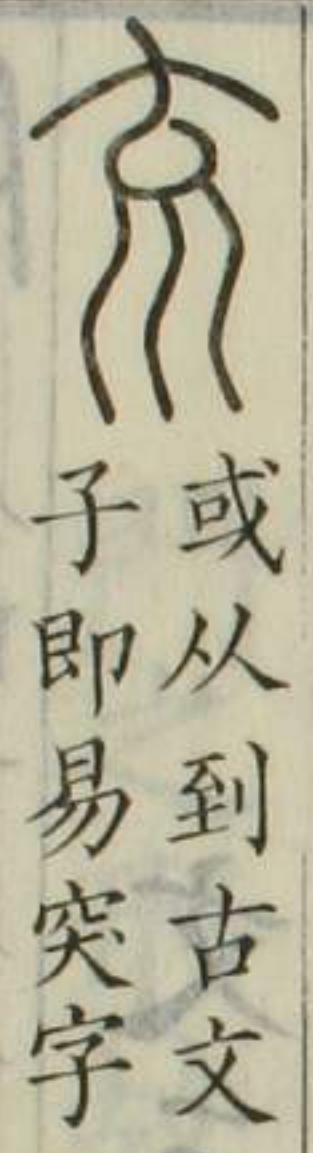 𠫓
或从到古文
子即易突字